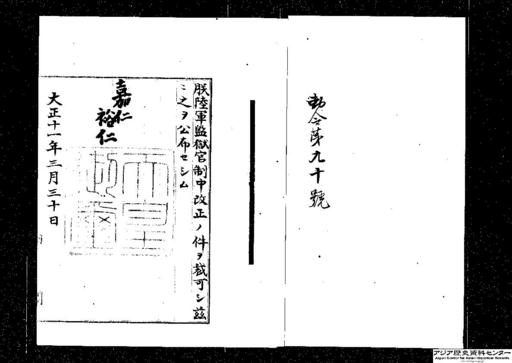 勅令第九十號
朕陸軍監獄官制中改正ノ件ヲ裁可シ茲
ニ之ヲ公布セシム
嘉仁
裕仁
大正十一年三月三十日
天皇御璽
アジア歴史資料センター
Japan Center for Asian Historical Records